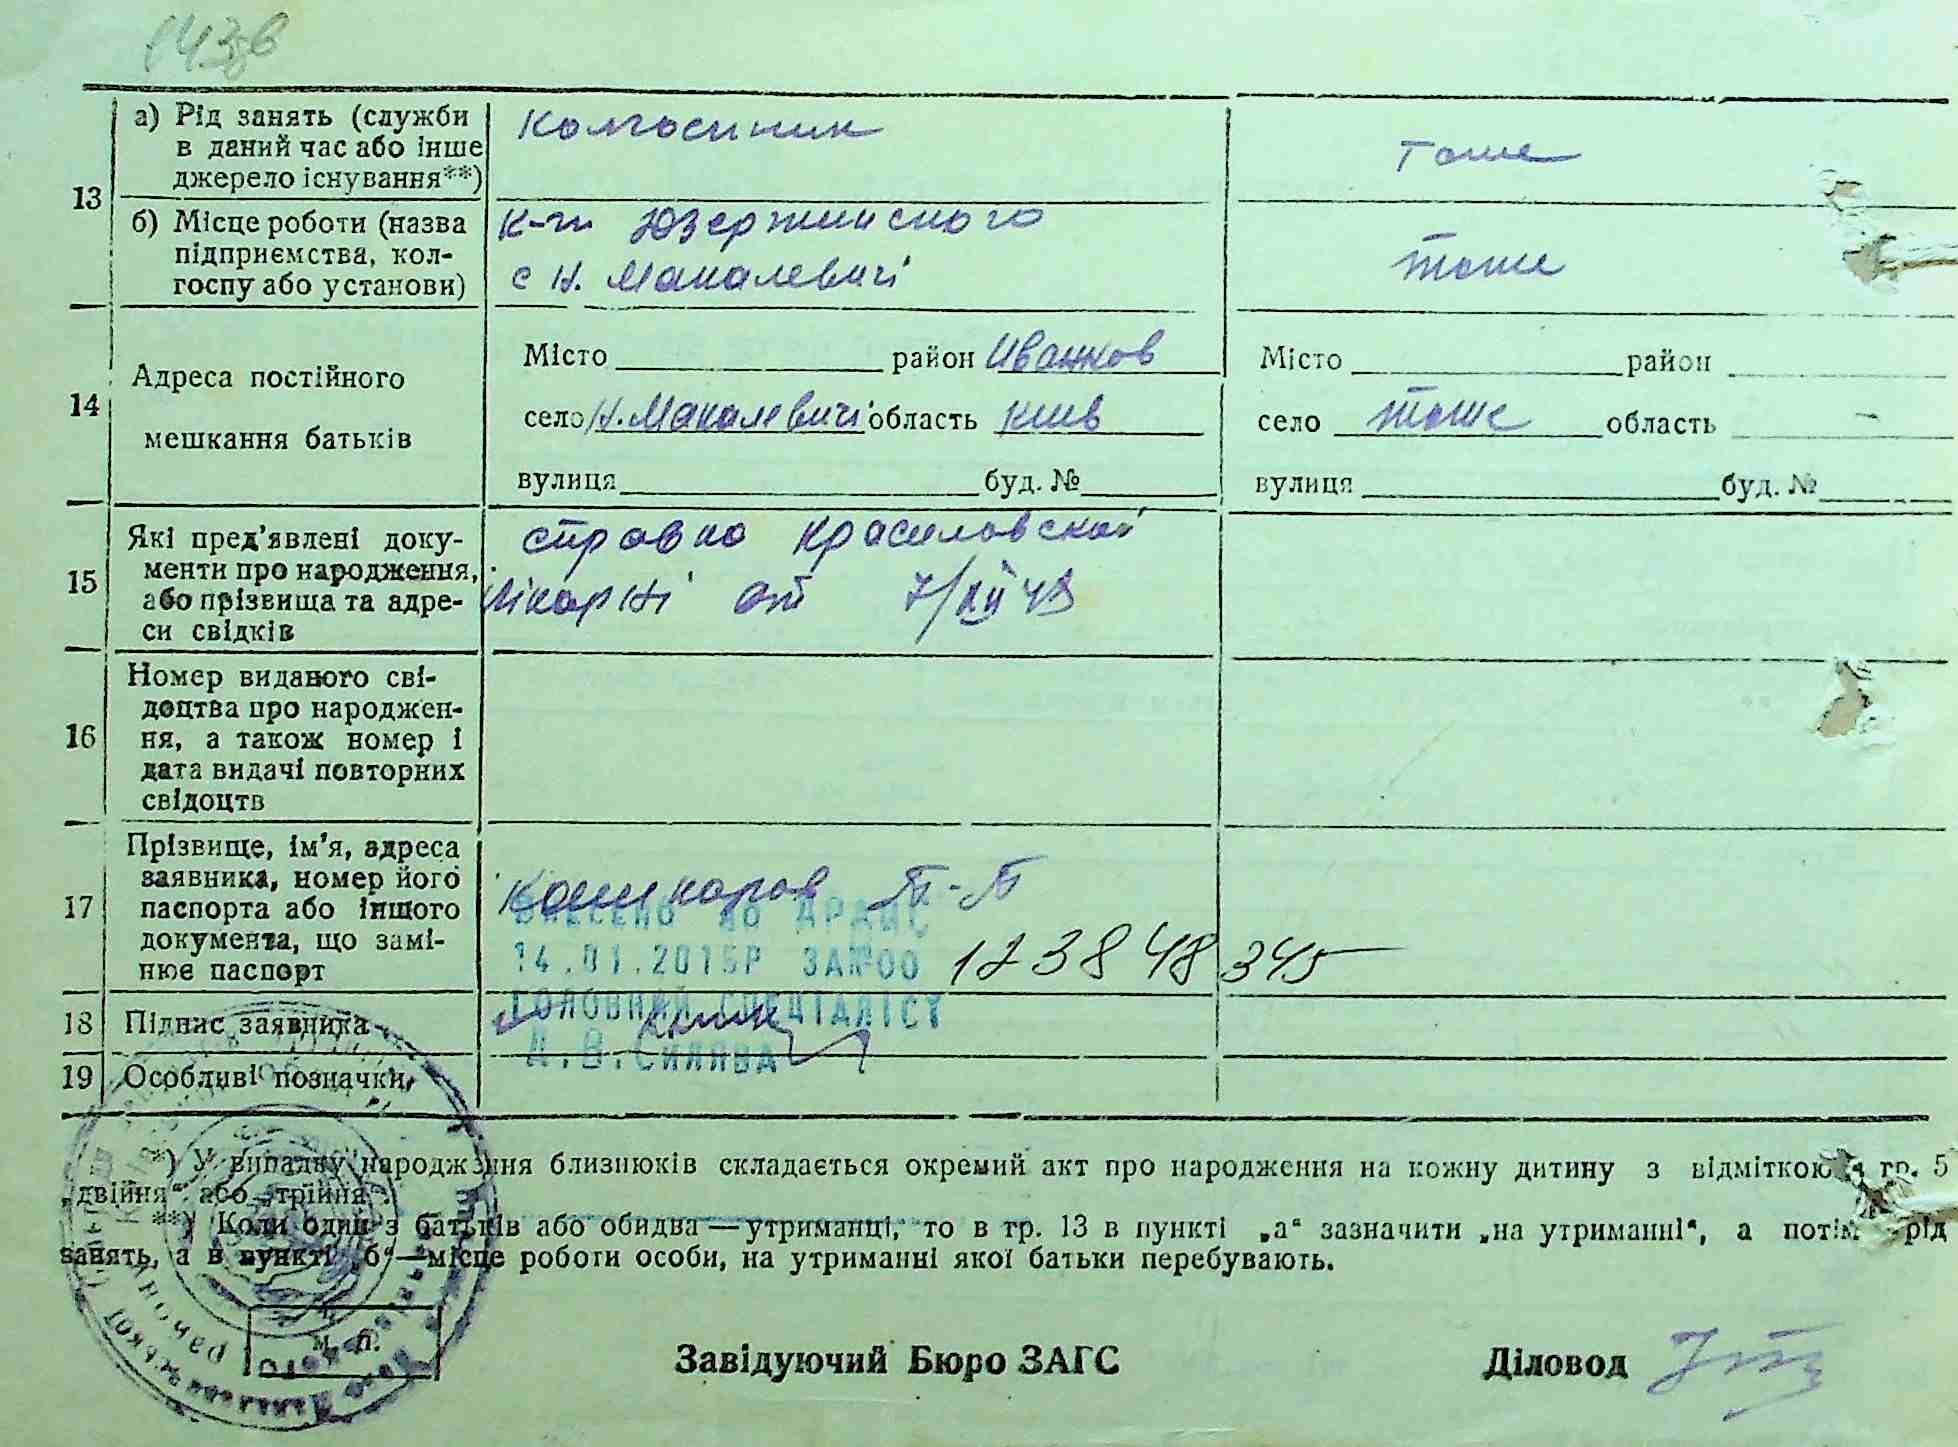 143
13
а) Рід занять (служби
в даний час або інше
джерело існування**)
колгоспник
тоже
б) Місце роботи (назва
підприємства, кол-
госпу або установи)
к-п Дзержинского
с Н. Макалевичі
тоже
14
Адреса постійного
мешкання батьків
Місто район Иванков
село Н. Макалевичі область Киів
вулиця буд. №
Місто район
село тоже область -
вулиця буд. №
15
Які пред'явлені доку-
менти про народження,
або прізвища та адре-
си свідків
справка Красиловской
лікарні от 7/XII 48
16
Номер виданого сві-
доцтва про народжен-
ня, а також номер і
дата видачі повторних
свідоцтв
17
Прізвище, ім'я, адреса
заявника, номер його
паспорта або іншого
документа, що замі-
нює паспорт
Кошкаров
ВНЕСЕНО ДО ДРАЦС
14.01.2015Р ЗА№00 12384 8 345
ГОЛОВНИЙ СПЕЦІАЛІСТ
18
Підпис заявника
19
Особливі позначки
*) У випадку народження близнюків складається окремий акт про народження на кожну дитину з відміткою гр. 5
„двійня“ або „трійня“.
**) Коли один з батьків або обидва — утриманці, то в гр. 13 в пункті „а“ зазначити „на утриманні“, а потім рід
занять, а в пункті „б“—місце роботи особи, на утриманні якої батьки перебувають.
М. П.
Завідуючий Бюро ЗАГС
Діловод